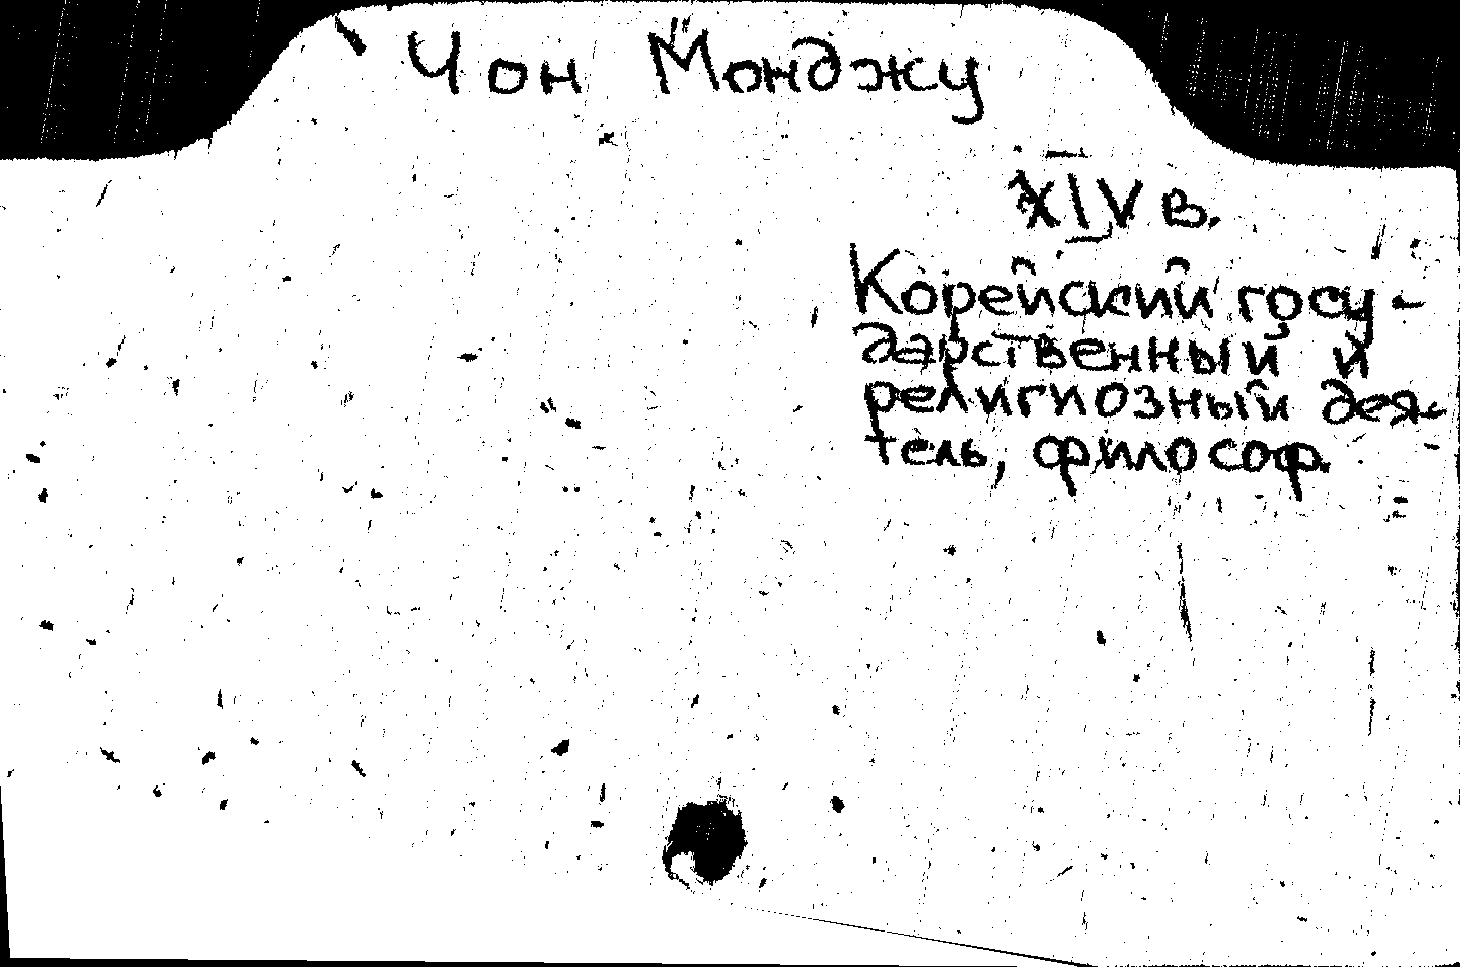 Чон Монджу
XIV в.
Корейский госу-
дарственный и
религиозный дея-
тель, философ.